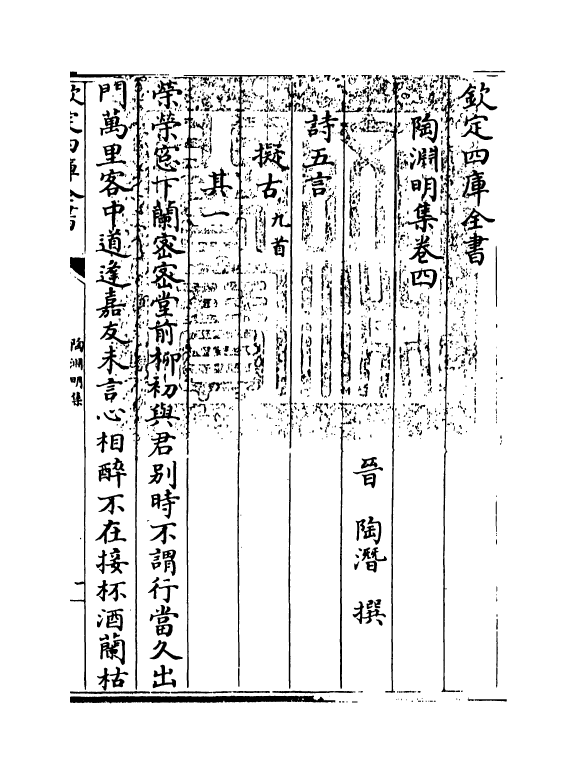 欽定四庫全書
陶淵明集卷四
晉 陶潛 撰
詩五言
擬古九首
其一
榮榮窓下蘭密密堂前柳初與君别時不謂行當久出
門萬里客中道逢嘉友未言心相醉不在接杯酒蘭枯
欽定四庫全書
陶淵明集